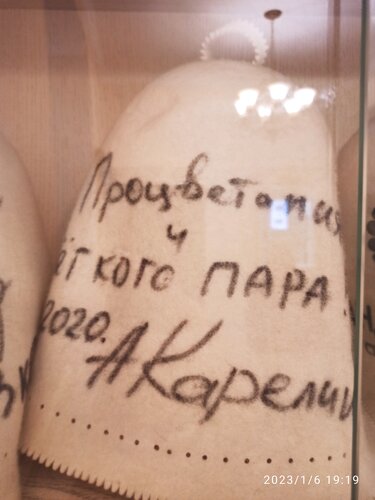 Процветания
и
лёгкого ПАРА.
2020.
А Карелин
2023/1/6 19:19